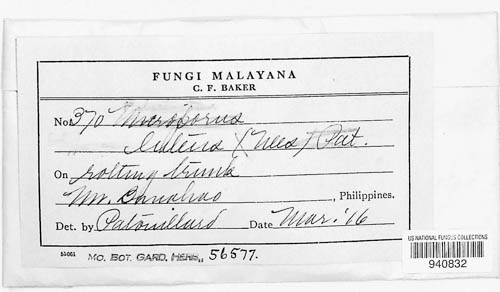 FUNGI MALAYANA
C. F. BAKER
No. 370 Microporus
luteus (Nees) Pat.
On rotting trunk
Mt. Banahao, Philippines.
Det. by Patouillard Date Mar. '16
51061 MO. BOT. GARD. HERB., 56577.
US NATIONAL FUNGUS COLLECTIONS
940832